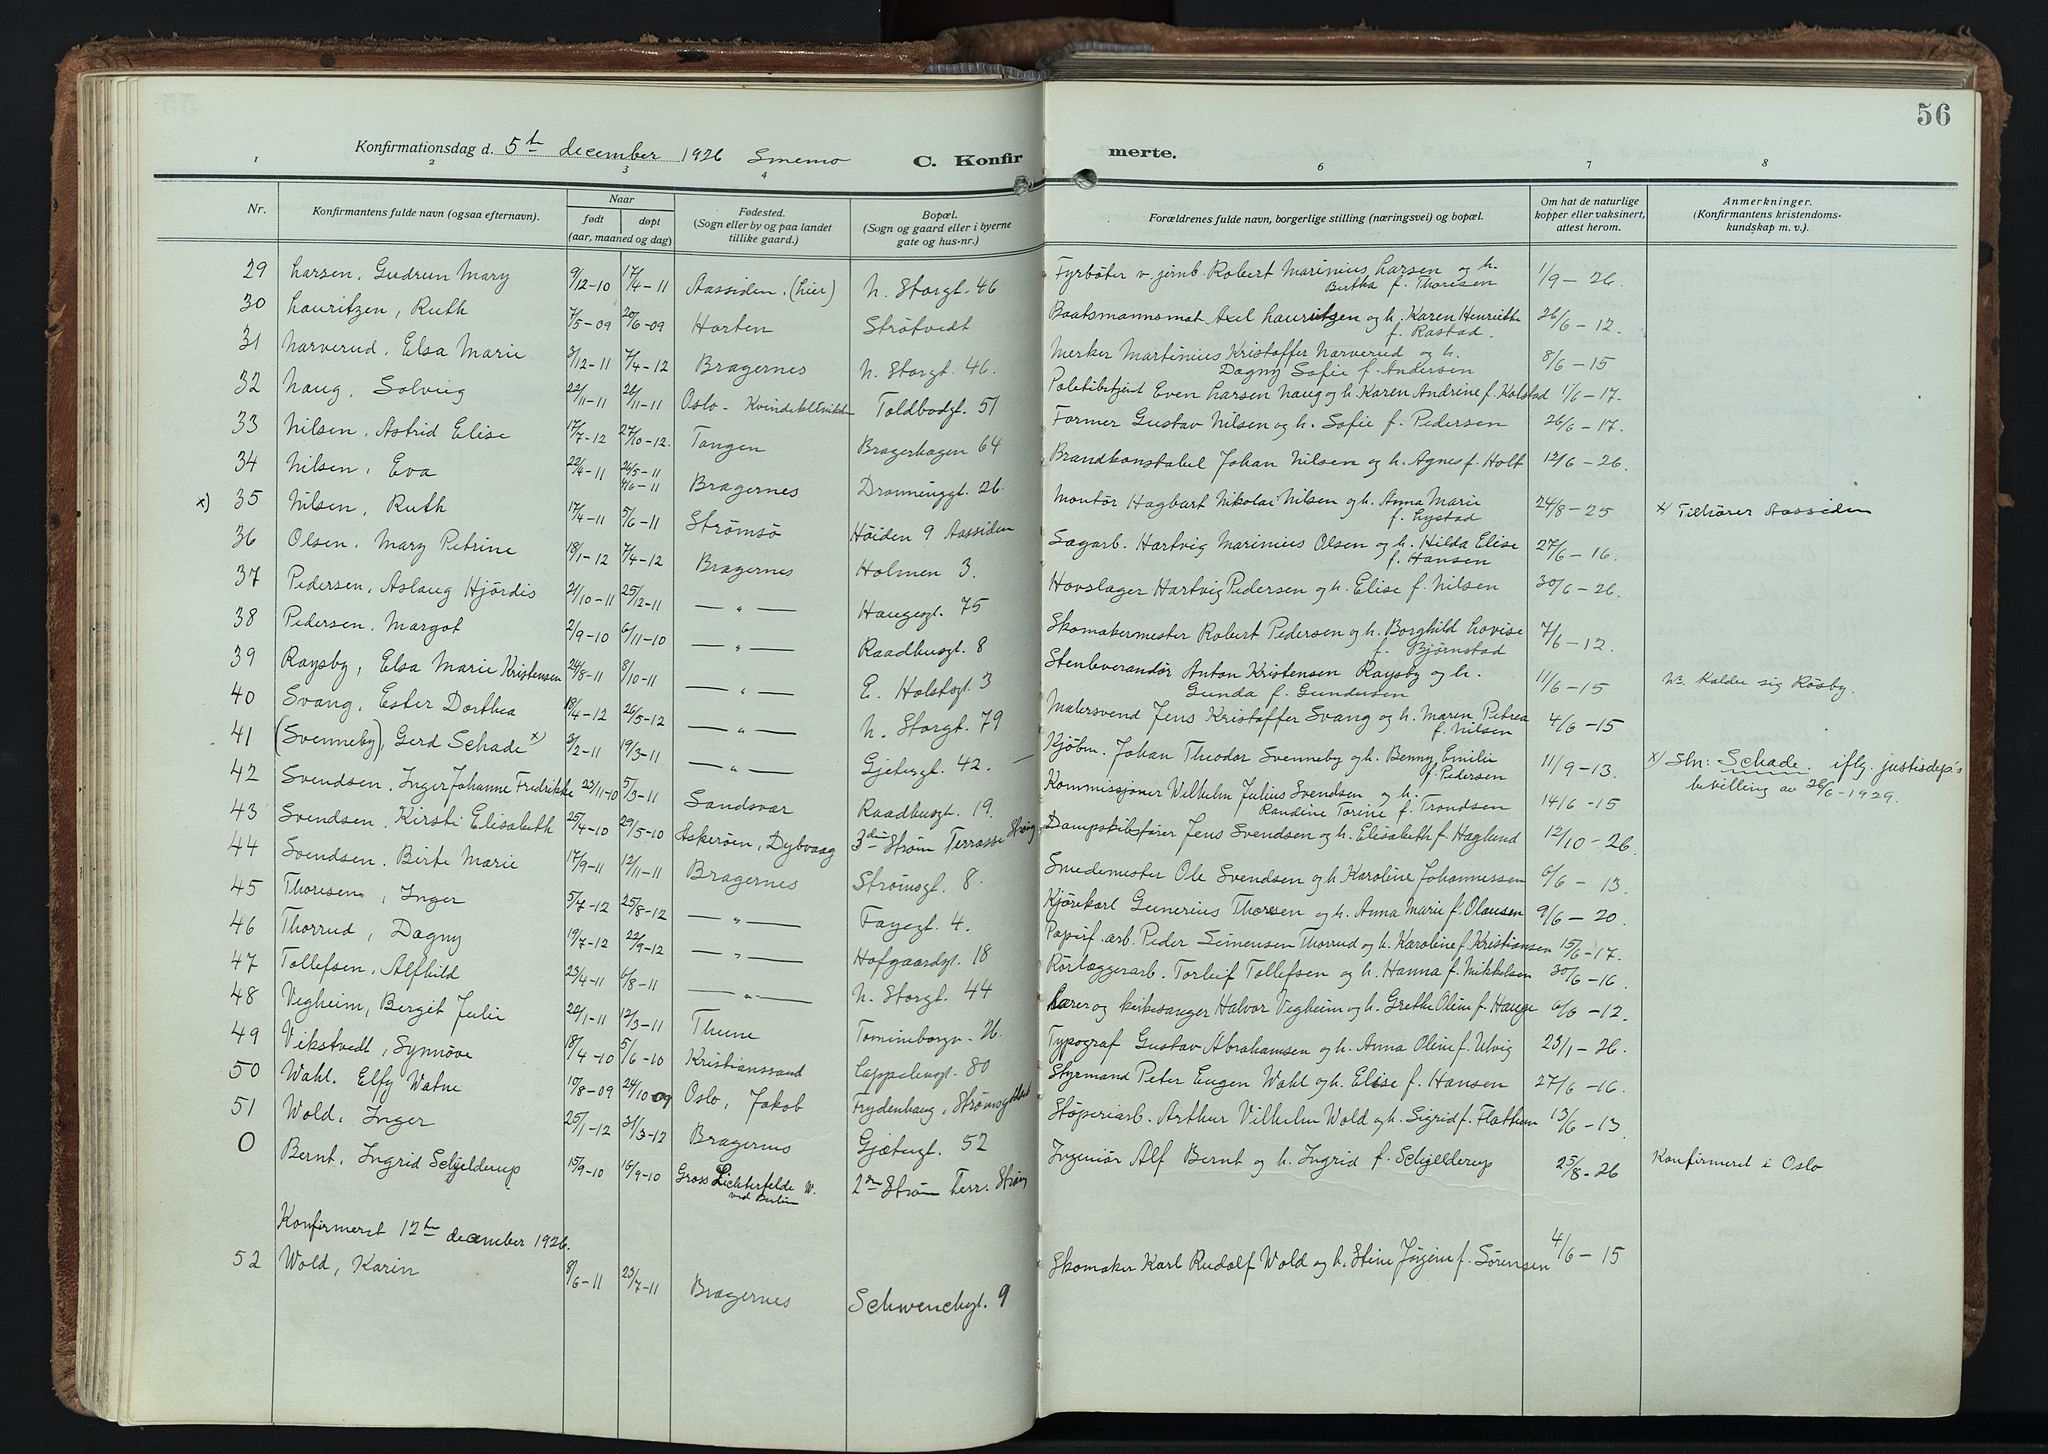 56
Konfirmationsdag d. 5te december 1926
C. Konfirmerte.
1 2 3 4 6 7 8
Nr.
Konfirmantens fulde navn (ogsaa efternavn).
Naar
født
døpt
(aar, maaned og dag)
Fødested.
(Sogn eller by og paa landet
tillike gaard.)
Bopæl.
(Sogn og gaard eller i byerne
gate og hus-nr.)
Forældrenes fulde navn, borgerlige stilling (næringsvei) og bopæl.
Om hat de naturlige
kopper eller vaksinert,
attest herom.
Anmerkninger.
(Konfirmantens kristendoms-
kundskap m. v.)
29 Larsen, Gudrun Mary 9/12-10 17/4-11 Aassiden (hier) N. Storgt. 46 Fyrbøter v. jernb. Robert Marinius Larsen og h. Bertha f. Thoresen 1/9-26.
30 Lauritzen, Ruth 7/5-09 20/6-09 Horten Strøtvedt Baatsmannsmat Axel Lauritzen og h. Karen Henriette f. Rastad 26/6-12.
31 Narverud, Elsa Marie 3/12-11 7/4-12 Bragernes N. Storgt. 46. Merker Martinius Kristoffer Narverud og h. Dagny Sofie f. Andersen 8/6-15
32 Naug, Solveig 22/11-11 26/11-11 Oslo - Kvindeklinikken Toldbodgt. 51 Politibetjent Even Larsen Naug og h. Karen Andrine f. Kolstad 1/6-17.
33 Nilsen, Astrid Elise 17/7-12 27/10-12. Tangen Bragerhagen 64 Former Gustav Nilsen og h. Sofie f. Pedersen 26/6-17.
34 Nilsen, Eva 22/4-11 24/5-11 4/6-11 Bragernes Dronninggt. 26. Brandkonstabel Johan Nilsen og h. Agnes f. Holt 12/6-26.
x) 35 Nilsen, Ruth 17/4-11 5/6-11 Strømsø Høiden 9 Aassiden Montør Hagbart Nikolai Nilsen og h. Anna Marie f. Lystad 24/8-25 x) Tilhører Aassiden
36 Olsen, Mary Petrine 18/1-12 7/4-12 Bragernes Holmen 3. Sagarb. Hartvig Marinius Olsen og h. Hilda Elise f. Hansen 27/6-16.
37 Pedersen, Aslaug Hjørdis 21/10-11 25/12-11 — " — Haugesgt. 75 Hovslager Hartvig Pedersen og h. Elise f. Nilsen 30/6-26.
38 Pedersen, Margot 2/9-10 6/11-10 — " — Raadhusgt. 8 Skomakermester Robert Pedersen og h. Borghild Lovise f. Bjørnstad 7/6-12.
39 Raysby, Elsa Marie Kristensen 24/8-11 8/10-11 — " — E. Holstsgt. 3 Stenleverandør Anton Kristensen Raysby og h. Gunda f. Gundersen 11/6-15 Kalder sig Røsby.
40 Svang, Ester Dorthea 18/4-12 26/5-12 — " — N. Storgt. 79 Malersvend Jens Kristoffer Svang og h. Maren Petrea f. Nilsen 4/6-15
41 (Svenneby), Gerd Schade x) 3/2-11 19/3-11 — " — Gjetergt. 42. — Kjøbm. Johan Theodor Svenneby og h. Benny Emilie f. Pedersen 11/9-13. x) Schade, iflg. justisdep's bevilling av 26/6-1929.
42 Svendsen, Inger Johanne Fredrikke 23/11-10 5/3-11 Sandsvær Raadhusgt. 19. Kommissjonær Wilhelm Julius Svendsen og h. Randine Torine f. Trondsen 14/6-15
43 Svendsen, Kirsti Elisabeth 25/4-10 29/5-10 Askerøen, Dybvaag 3die Strøm Terrasse Strøms Dampskibsfører Jens Svendsen og h. Elisabeth f. Haglund 12/10-26.
44 Svendsen, Birte Marie 17/9-11 12/11-11 Bragernes Strømsgt. 8. Smedemester Ole Svendsen og h. Karoline Johannessen 6/6-13.
45 Thoresen, Inger 5/7-12 25/8-12 — " — Fayegt. 4. Kjørekarl Gunerius Thoresen og h. Anna Marie f. Olausen 9/6-20
46 Thorrud, Dagny 19/7-12 22/9-12 — " — Hofgaardgt. 18 Papirf. arb. Peder Simensen Thorrud og h. Karoline f. Kristiansen 15/6-17.
47 Tollefsen, Alfhild 23/4-11 6/8-11 — " — N. Storgt. 44 Rørlæggerarb. Torleif Tollefsen og h. Hanna f. Mikkelsen 30/6-16.
48 Vegheim, Berget Julie 20/1-11 12/3-11 Thune Tomineborgv. 26. Lærer og kirkesanger Halvor Vegheim og h. Grethe Oline f. Hauge 6/6-12.
49 Vikstvedt, Synnøve 18/4-10 5/6-10 Kristianssand Cappelensgt. 80 Typograf Gustav Abrahamsen og h. Anna Oline f. Ulvig 23/1-26.
50 Wahl, Elfy Watne 10/8-09 24/10-09 Oslo, Jakob Frydenhaug, Styrmand Peter Eugen Wahl og h. Elise f. Hansen 27/6-16.
51 Wold, Inger 25/1-12 31/3-12 Bragernes Gjætergt. 52 Støperiarb. Arthur Vilhelm Wold og h. Sigrid f. Flattum 13/6-13.
0 Bernt, Ingrid Schjelderup 15/9-10 16/9-10 Gross Lichterfelde W. ved Berlin 2den Strøm Terr. Strøm Ingeniør Alf Bernt og h. Ingrid f. Schjelderup 25/8-26 Konfirmeret i Oslo
Konfirmeret 12te december 1926.
52 Wold, Karin 8/6-11 23/7-11 Bragernes Schwenckegt. 9 Skomaker Karl Rudolf Wold og h. Stine Jørgine f. Sørensen 4/6-15